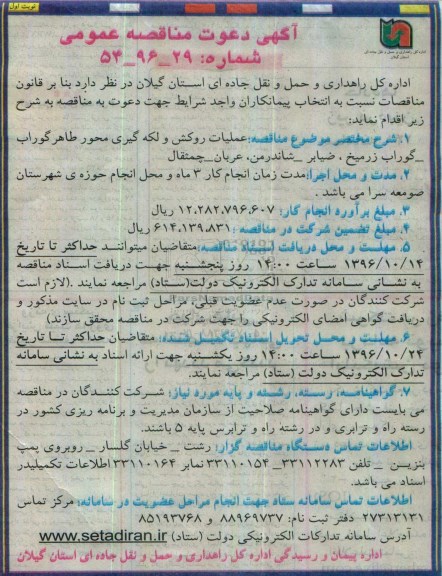 نوبت اول
آگهی دعوت مناقصه عمومی
شماره: ۲۹_۹۶_۵۴
اداره کل راهداری و حمل و نقل جاده ای
استان گیلان
اداره کل راهداری و حمل و نقل جاده ای استان گیلان در نظر دارد بنا بر قانون
مناقصات نسبت به انتخاب پیمانکاران واجد شرایط جهت دعوت به مناقصه به شرح
زیر اقدام نماید:
۱. شرح مختصر موضوع مناقصه: عملیات روکش و لکه گیری محور طاهرگوراب
_گوراب زرمیخ ، ضیابر _شاندرمن، عربان_چمثقال
۲. مدت و محل اجرا: مدت زمان انجام کار ۳ ماه و محل انجام حوزه ی شهرستان
صومعه سرا می باشد .
۳. مبلغ برآورد انجام کار: ۱۲.۲۸۲.۷۹۶.۶۰۷ ریال
۴. مبلغ تضمین شرکت در مناقصه : ۶۱۴.۱۳۹.۸۳۱ ریال
۵. مهلت و محل دریافت اسناد مناقصه: متقاضیان میتوانند حداکثر تا تاریخ
۱۳۹۶/۱۰/۱۴ ساعت ۱۴:۰۰ روز پنجشنبه جهت دریافت اسناد مناقصه
به نشانی سامانه تدارک الکترونیک دولت(ستاد) مراجعه نمایند .(لازم است
شرکت کنندگان در صورت عدم عضویت قبلی، مراحل ثبت نام در سایت مذکور و
دریافت گواهی امضای الکترونیکی را جهت شرکت در مناقصه محقق سازند)
۶. مهلت و محل تحویل اسناد تکمیل شده: متقاضیان حداکثر تا تاریخ
۱۳۹۶/۱۰/۲۴ ساعت ۱۴:۰۰ روز یکشنبه جهت ارائه اسناد به نشانی سامانه
تدارک الکترونیک دولت (ستاد) مراجعه نمایند.
۷. گواهینامه، رسته، رشته و پایه مورد نیاز: شرکت کنندگان در مناقصه
می بایست دارای گواهینامه صلاحیت از سازمان مدیریت و برنامه ریزی کشور در
رسته راه و ترابری و در رشته راه و ترابری پایه ۵ باشند.
اطلاعات تماس دستگاه مناقصه گزار: رشت _ خیابان گلسار _ روبروی پمپ
بنزین _ تلفن ۳۳۱۱۲۲۸۳_۳۳۱۱۰۱۵۴ نمابر ۳۳۱۱۰۱۶۴ اطلاعات تکمیلیدر
اسناد می باشد.
اطلاعات تماس سامانه ستاد جهت انجام مراحل عضویت در سامانه: مرکز تماس
۲۷۳۱۳۱۳۱ دفتر ثبت نام: ۸۸۹۶۹۷۳۷ و ۸۵۱۹۳۷۶۸
آدرس سامانه تدارکات الکترونیکی دولت (ستاد) www.setadiran.ir
اداره پیمان و رسیدگی اداره کل راهداری و حمل و نقل جاده ای استان گیلان